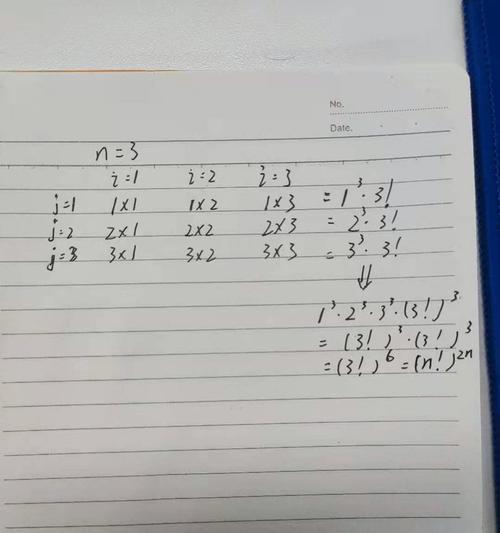 No.
Date.
n=3
i=1 i=2 i=3
j=1 1×1 1×2 1×3 = 1³·3!
j=2 2×1 2×2 2×3 = 2³·3!
j=3 3×1 3×2 3×3 = 3³·3!
⇓
1³·2³·3³·(3!)³
= (3!)³·(3!)³
= (3!)⁶ = (n!)²ⁿ